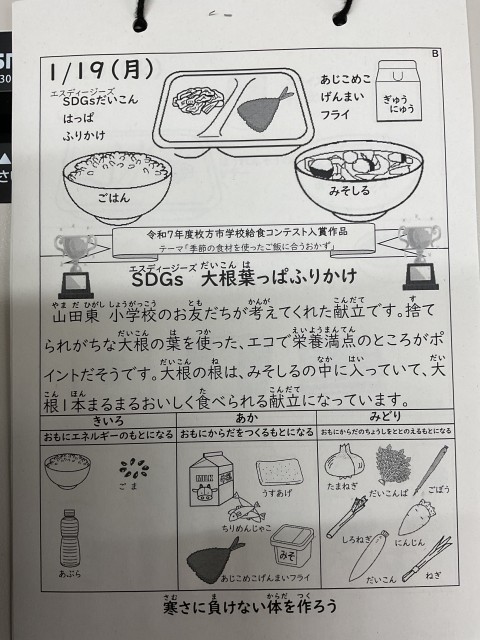 B
1/19(月)
エスディージーズ
SDGsだいこん
はっぱ
ふりかけ
あじこめこ
げんまい
フライ
ぎゅう
にゅう
ごはん
みそしる
令和7年度枚方市学校給食コンテスト入賞作品
テーマ「季節の食材を使ったご飯に合うおかず」
エスディージーズ だいこん は
SDGs 大根葉っぱふりかけ
やまだひがし しょうがっこう とも かんが こんだて す
山田東 小学校のお友だちが考えてくれた献立です。捨て
だいこん は つか えいようまんてん
られがちな大根の葉を使った、エコで栄養満点のところがポ
だいこん ね なか はい だい
イントだそうです。大根の根は、みそしるの中に入っていて、大
こん ほん た こんだて
根1本まるまるおいしく食べられる献立になっています。
きいろ あか みどり
おもにエネルギーのもとになる おもにからだをつくるもとになる おもにからだのちょうしをととのえるもとになる
ごま
うすあげ
たまねぎ だいこんば ごぼう
ちりめんじゃこ
しろねぎ にんじん
みそ
あぶら
あじこめこげんまいフライ
だいこん ねぎ
さむ ま からだ つく
寒さに負けない体を作ろう